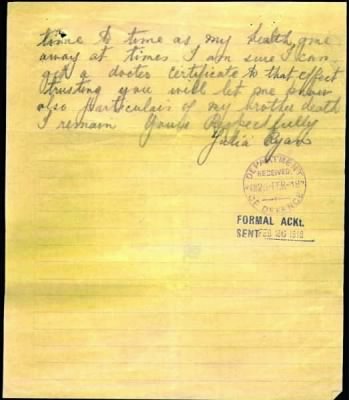 time to time as my health give
away at times I am sure I can
get a doctor certificate to that effect
trusting you will let me know
also particulars of my brother death
I remain Yours Respectfully
Julia Ryan
DEPARTMENT
RECEIVED
FEB
OF DEFENCE
FORMAL ACKt.
SENT FEB 26 1918